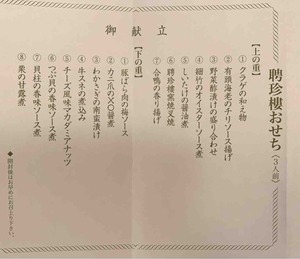 聘珍樓おせち（3人前）
御献立
【上の重】
① クラゲの和え物
② 有頭海老のチリソース揚げ
③ 野菜酢漬けの盛り合わせ
④ 細竹のオイスターソース煮
⑤ しいたけの醤油煮
⑥ 聘珍樓窯焼叉焼
⑦ 合鴨の香り揚げ
【下の重】
① 豚ばら肉の梅ソース
② カニ爪のXO醤煮
③ わかさぎの南蛮漬け
④ 牛スネの煮込み
⑤ チーズ風味マカダミアナッツ
⑥ つぶ貝の香味ソース煮
⑦ 貝柱の香味ソース煮
⑧ 栗の甘露煮
◆開封後はお早めにお召上り下さい。